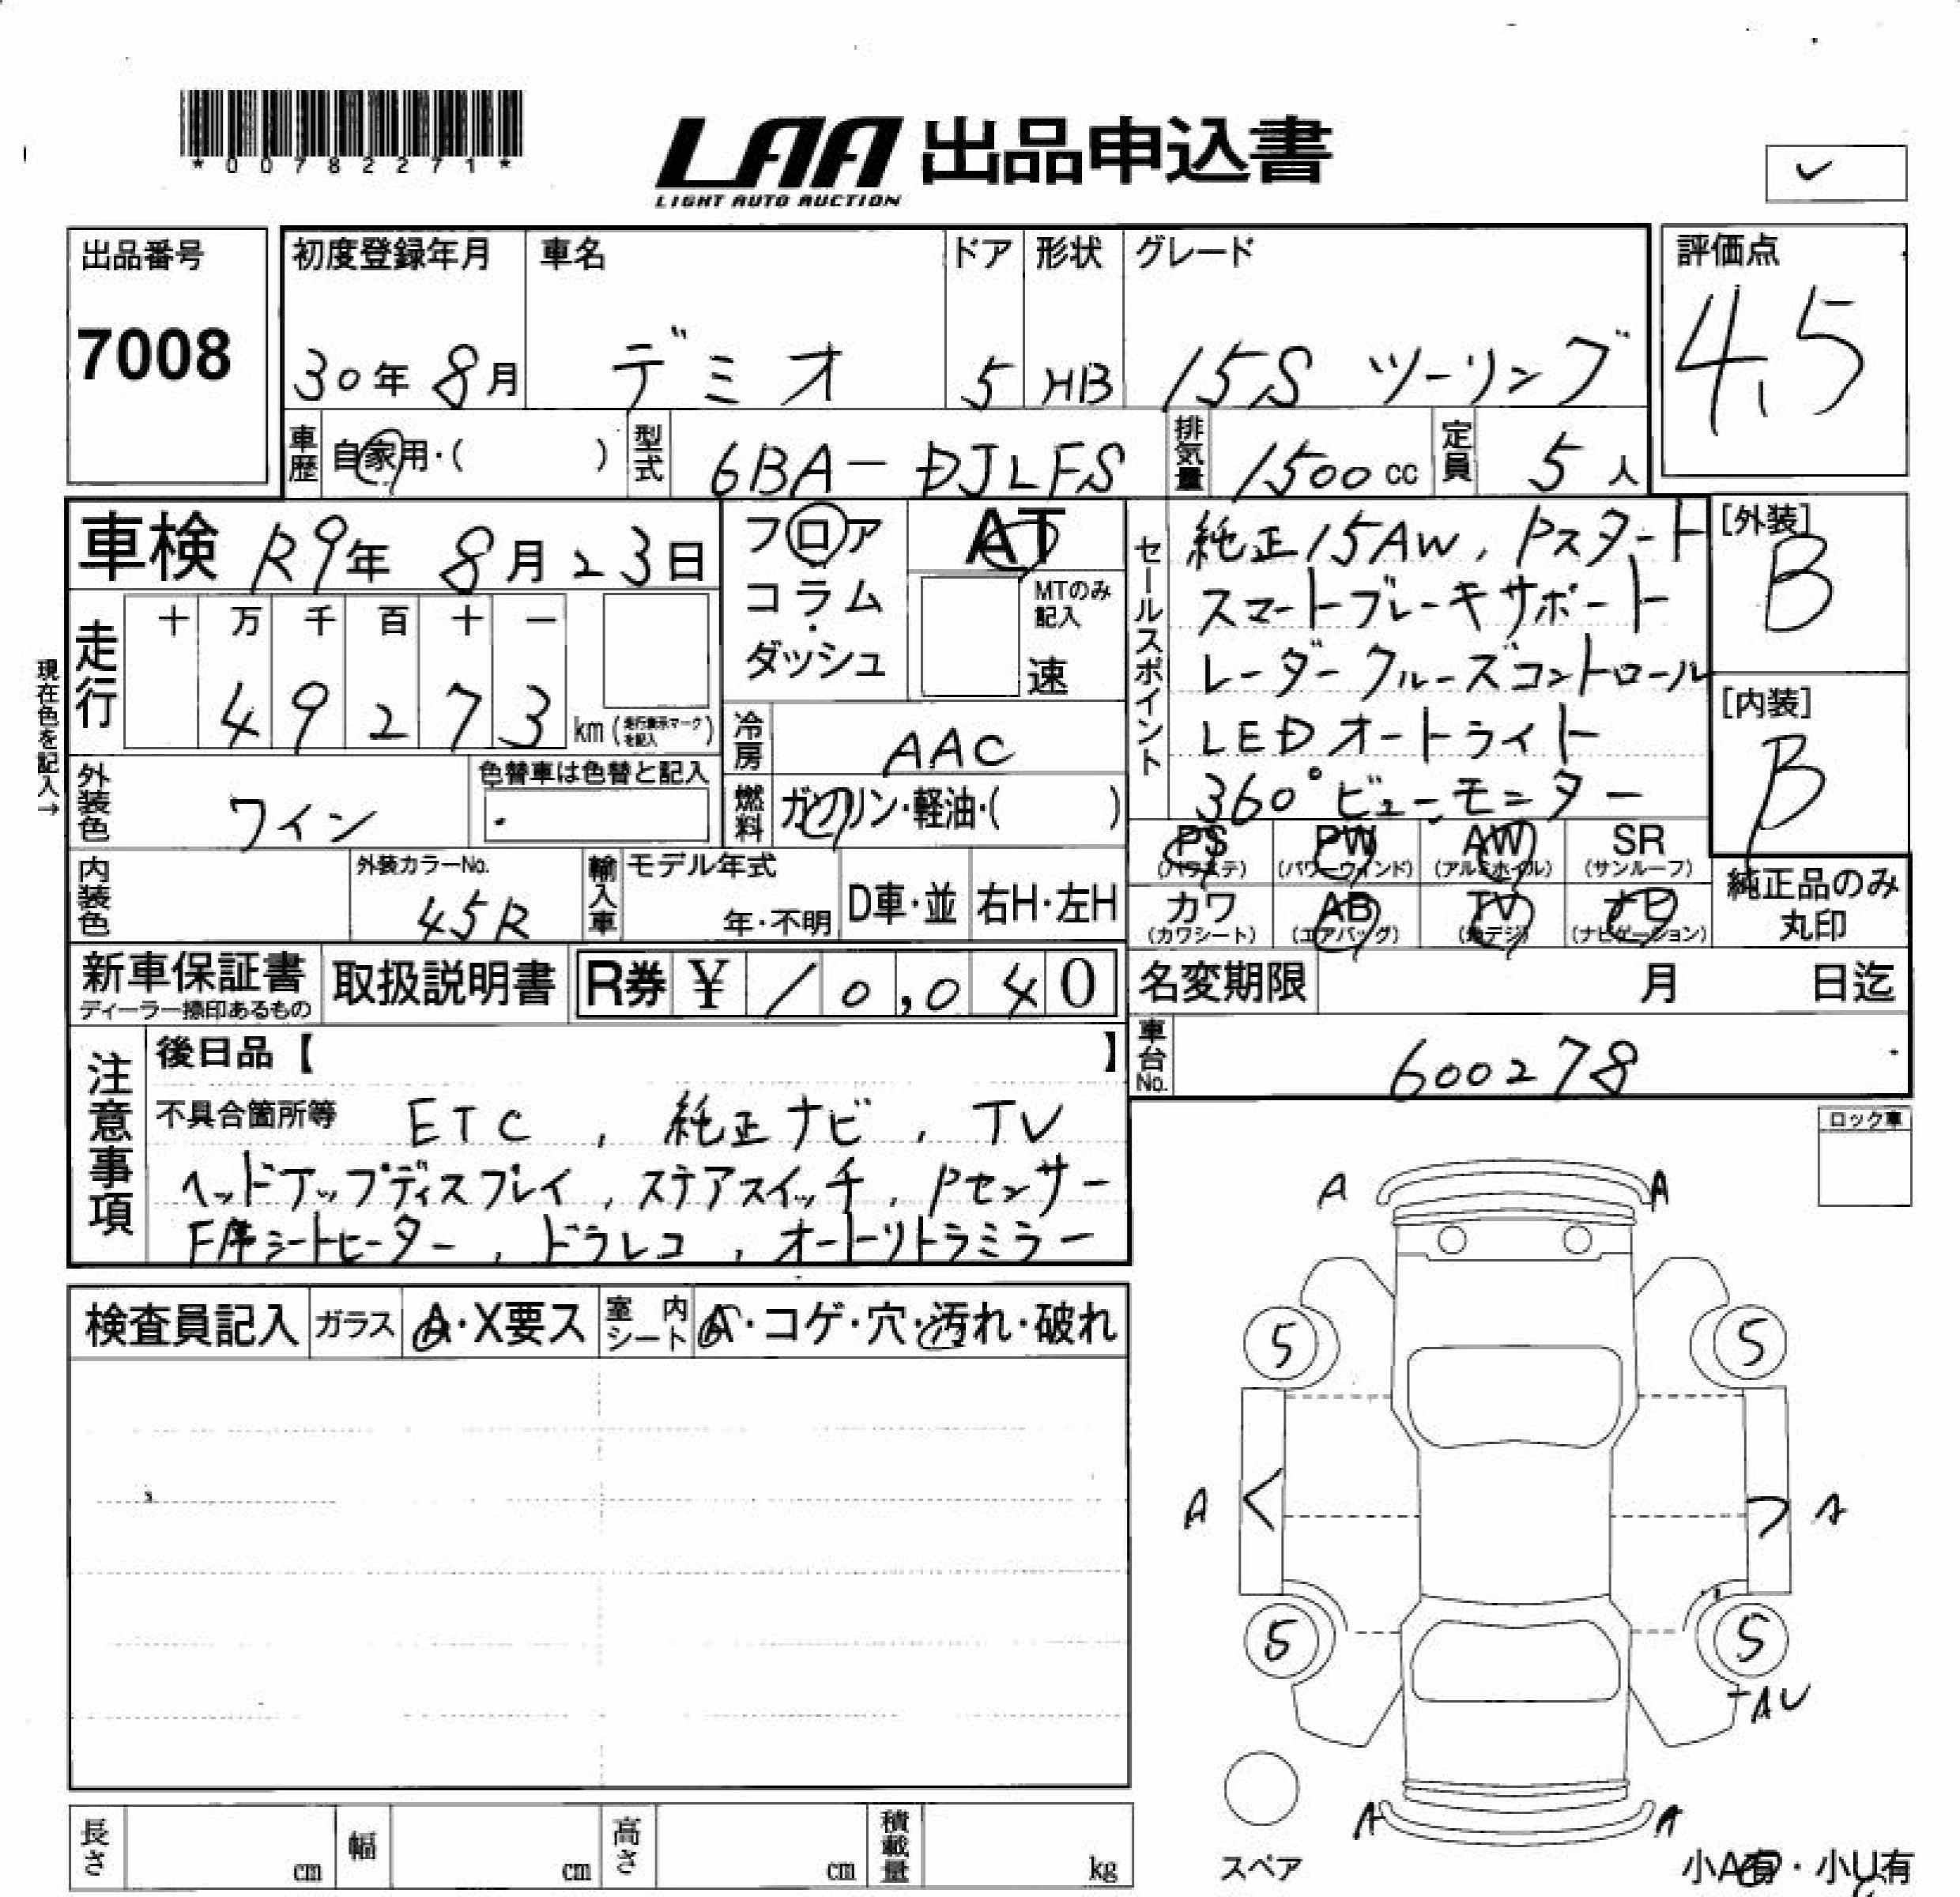 *00782271*
LAA 出品申込書
LIGHT AUTO AUCTION
出品番号
7008
初度登録年月
30年 8月
車名
デミオ
ドア
5
形状
HB
グレード
15S ツーリング
評価点
4.5
車歴 自家用・( )
型式 6BA-DJLFS
排気量 1500cc
定員 5人
車検 R9年 8月23日
フロア
コラム
ダッシュ
AT
MTのみ
記入
速
走行
十 万 千 百 十 一
49273 km (走行表示マークを記入)
現在色を記入→
冷房 AAC
燃料 ガソリン・軽油・( )
外装色 ワイン
色替車は色替と記入
内装色
外装カラーNo.
45R
輸入車
モデル年式
年・不明
D車・並
右H・左H
セールスポイント
純正15AW, Pスタート
スマートブレーキサポート
レーダークルーズコントロール
LEDオートライト
360°ビューモニター
[外装]
B
[内装]
B
PS
(パワステ)
PW
(パワーウィンド)
AW
(アルミホイル)
SR
(サンルーフ)
カワ
(カワシート)
AB
(エアバッグ)
TV
(地デジ)
ナビ
(ナビゲーション)
純正品のみ
丸印
新車保証書
ディーラー捺印あるもの
取扱説明書
R券 ¥10,040
名変期限 月 日迄
車台No. 600278
注意事項
後日品【 】
不具合箇所等 ETC, 純正ナビ, TV
ヘッドアップディスプレイ, ステアスイッチ, Pセンサー
F席シートヒーター, ドラレコ, オートリトラミラー
ロック車
検査員記入
ガラス A・X要ス
室内シート A・コゲ・穴・汚れ・破れ
A A
5 5
A A
5 5
AU
A A
スペア
小A有・小U有
長さ cm
幅 cm
高さ cm
積載量 kg